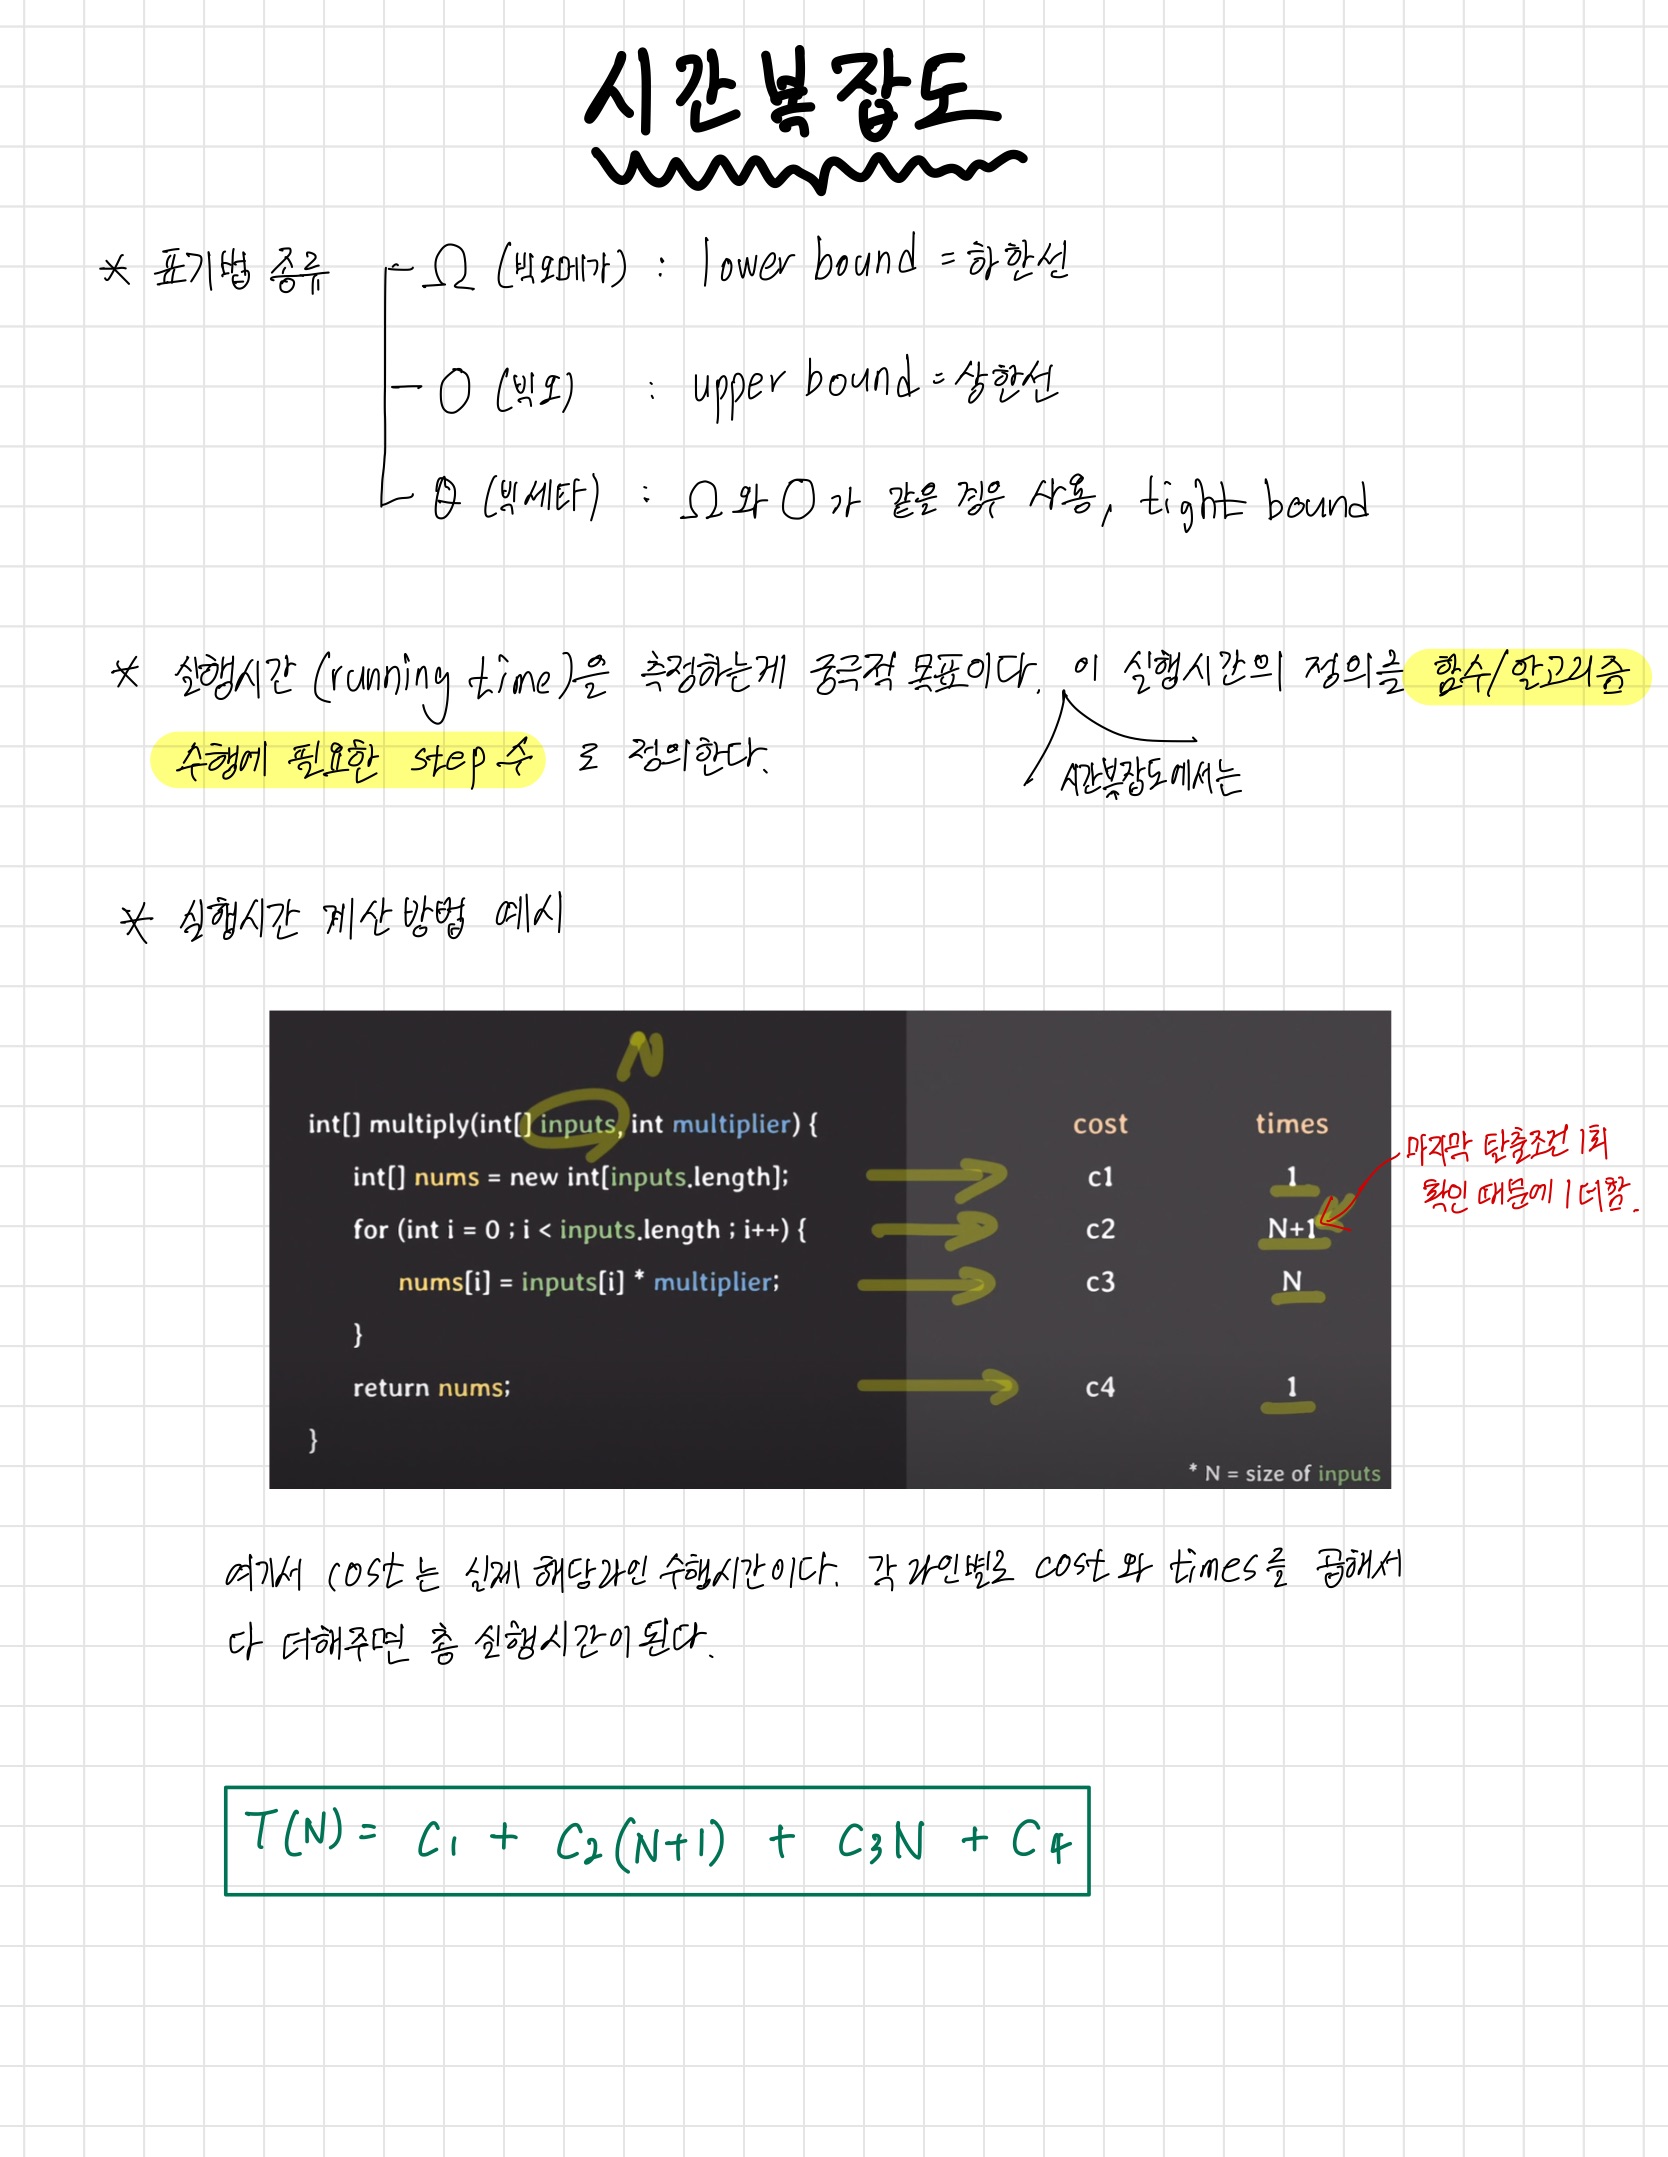 시간복잡도
* 표기법 종류 - Ω (빅오메가) : lower bound = 하한선
- O (빅오) : upper bound = 상한선
- θ (빅세타) : Ω와 O가 같을 경우 사용, tight bound
* 실행시간 (running time)을 측정하는게 궁극적 목표이다. 이 실행시간의 정의를 함수/알고리즘
수행에 필요한 step 수 로 정의한다.
시간복잡도에서는
* 실행시간 계산방법 예시
N
int[] multiply(int[] inputs, int multiplier) { cost times
int[] nums = new int[inputs.length]; c1 1
for (int i = 0 ; i < inputs.length ; i++) { c2 N+1
nums[i] = inputs[i] * multiplier; c3 N
}
return nums; c4 1
}
* N = size of inputs
마지막 탈출조건 1회
확인 때문에 1 더함.
여기서 cost는 실제 해당라인 수행시간이다. 각 라인별로 cost와 times를 곱해서
다 더해주면 총 실행시간이 된다.
T(N) = C1 + C2(N+1) + C3N + C4